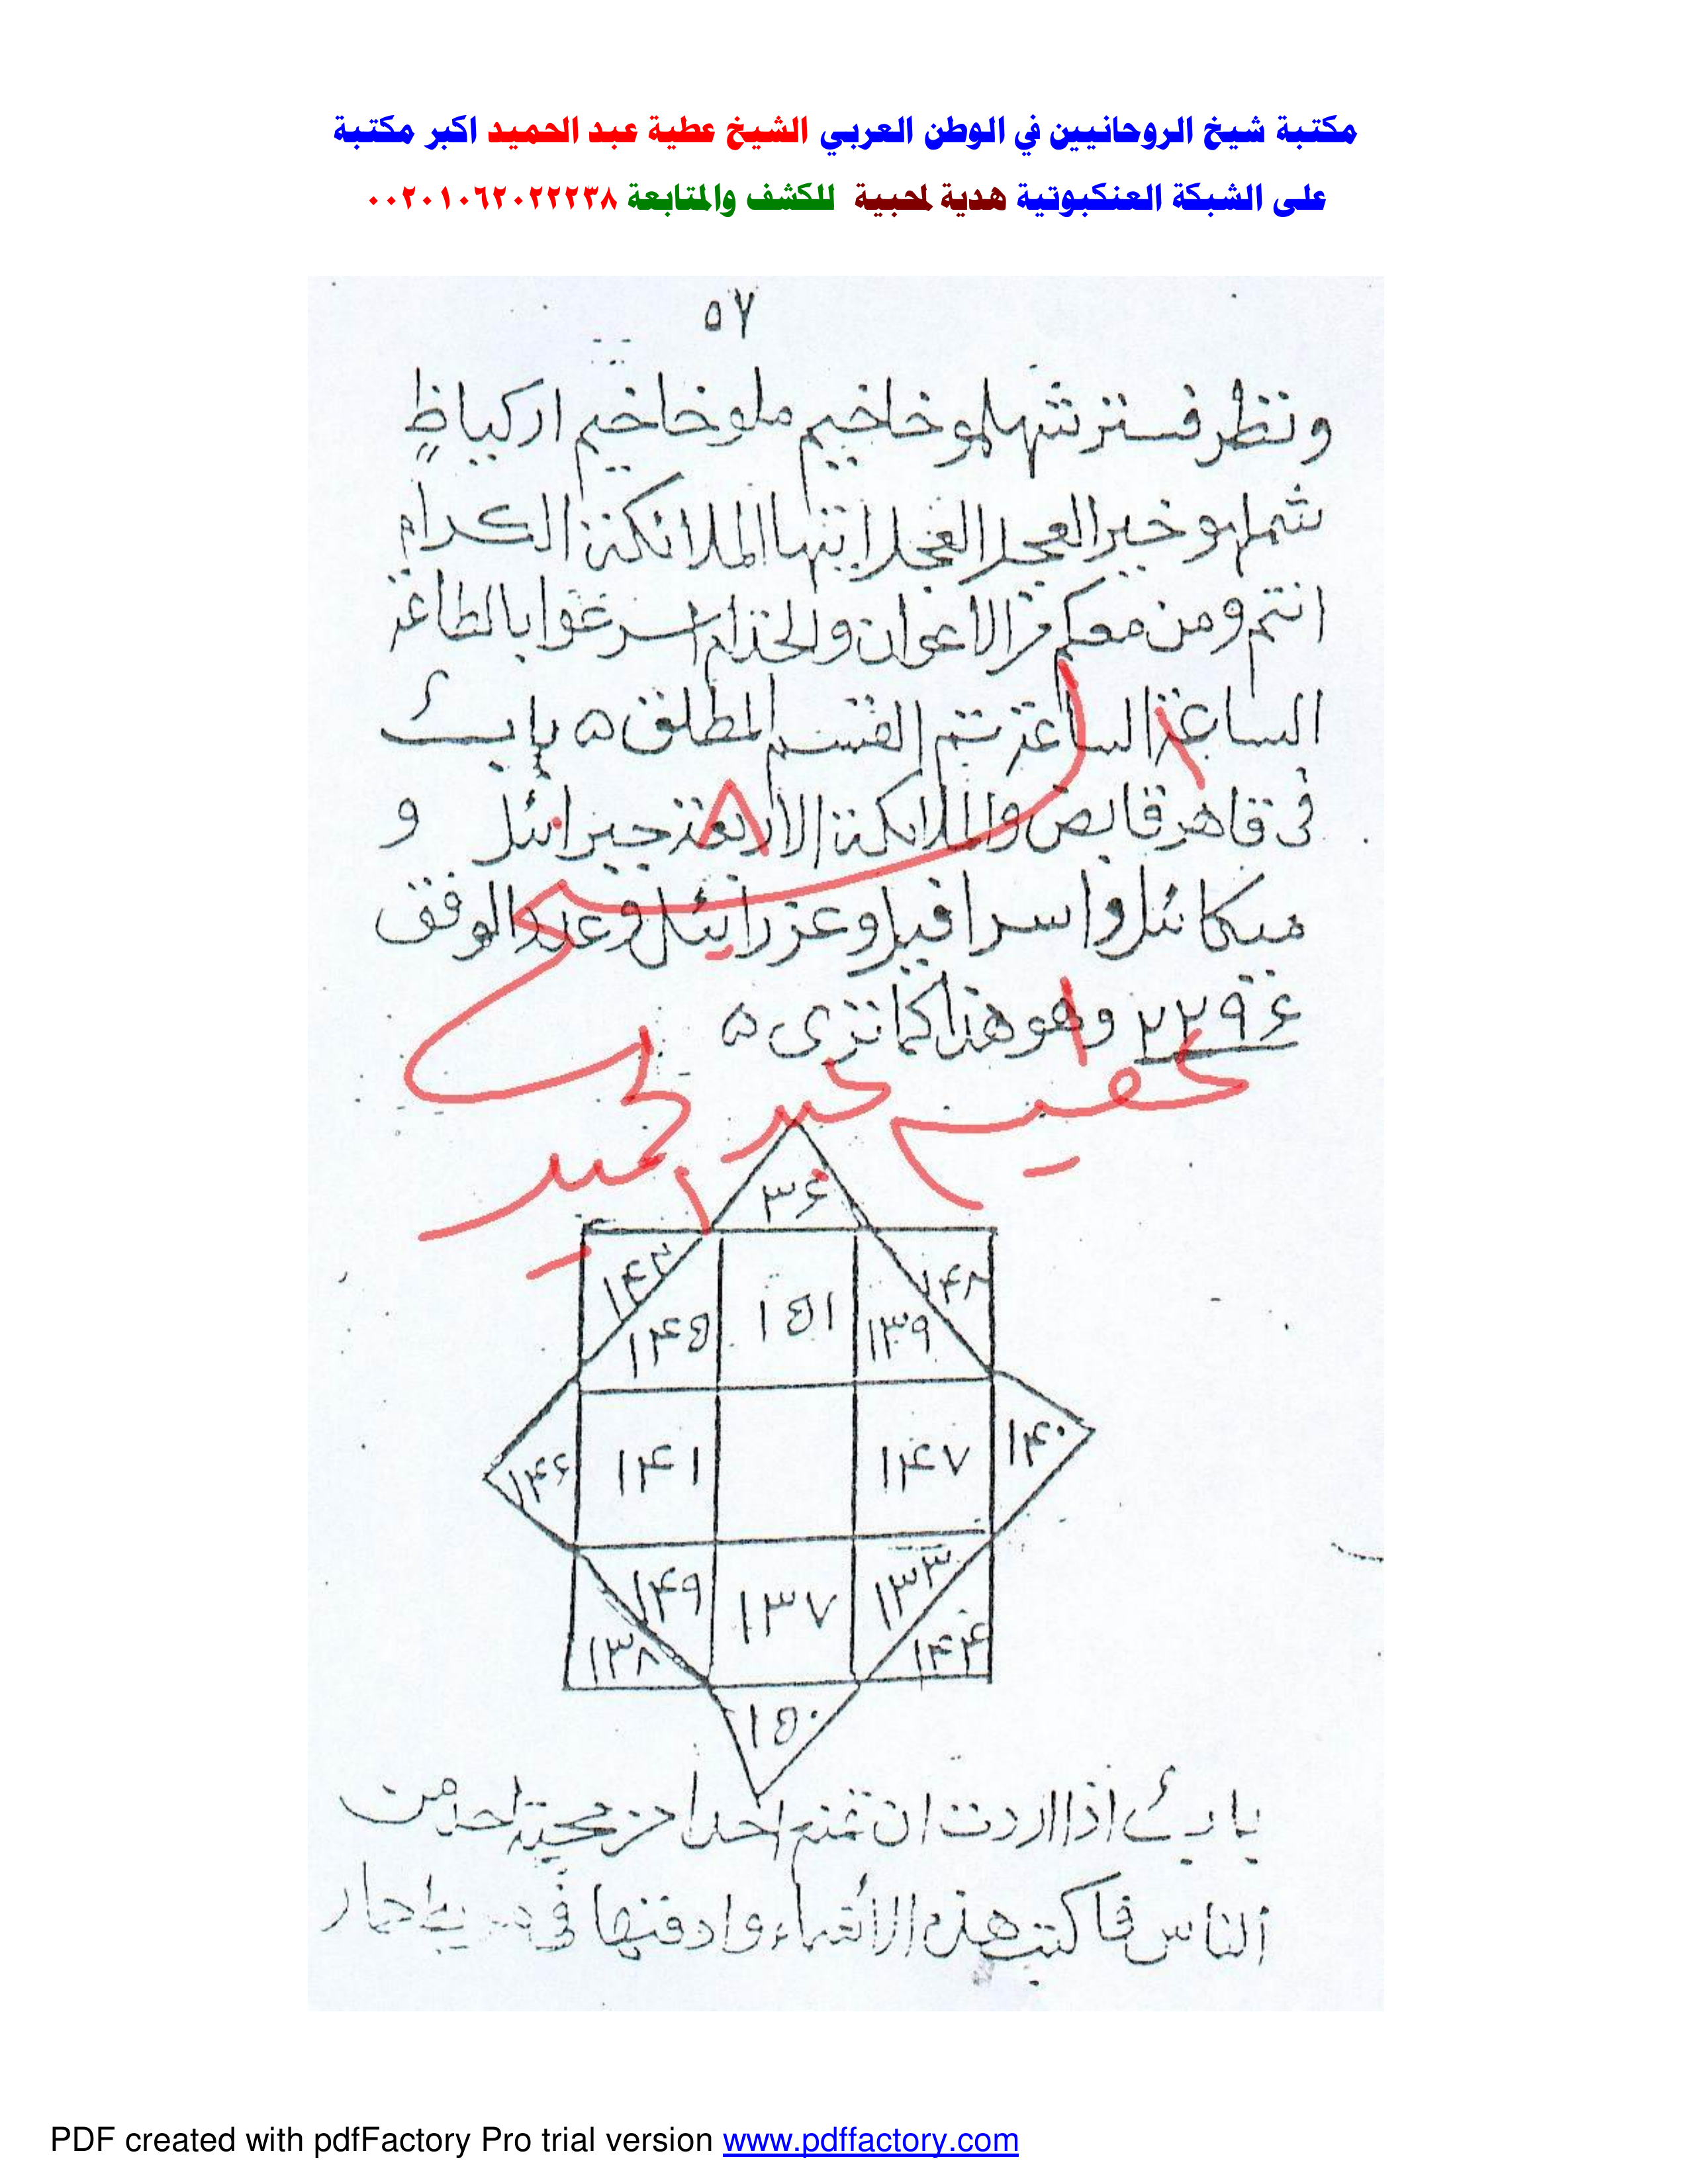 مكتبة شيخ الروحانيين في الوطن العربي الشيخ عطية عبد الحميد اكبر مكتبة
على الشبكة العنكبوتية هدية لمحبية للكشف والمتابعة ٠٠٢٠١٠٦٢٠٢٢٢٣٨
٥٧
ملوخاخيم
العجل العجل ايتها الملائكة الكرام
انتم ومن معكم من الاعوان والخدام اسرعوا بالطاعة
الساعة الساعة تتم القسم المطلق ه باب
فى قاهر قابض والملائكة الاربعة جبرائيل و
ميكائيل واسرافيل وعزرائيل وعدد الوفق
وهو هذا كما ترى ه
عطية عبد الحميد
٣٤
١٤٨
١٤٥ ١٥١ ١٣٩
١٤٦ ١٤١ ١٤٧ ١٤٠
١٤٩ ١٣٧ ١٣٣
١٣٨
١٥٠
باب اذا اردت ان تمنع احدا من محبة احد من
الناس فاكتب هذه الاسماء وادفنها فى
PDF created with pdfFactory Pro trial version www.pdffactory.com